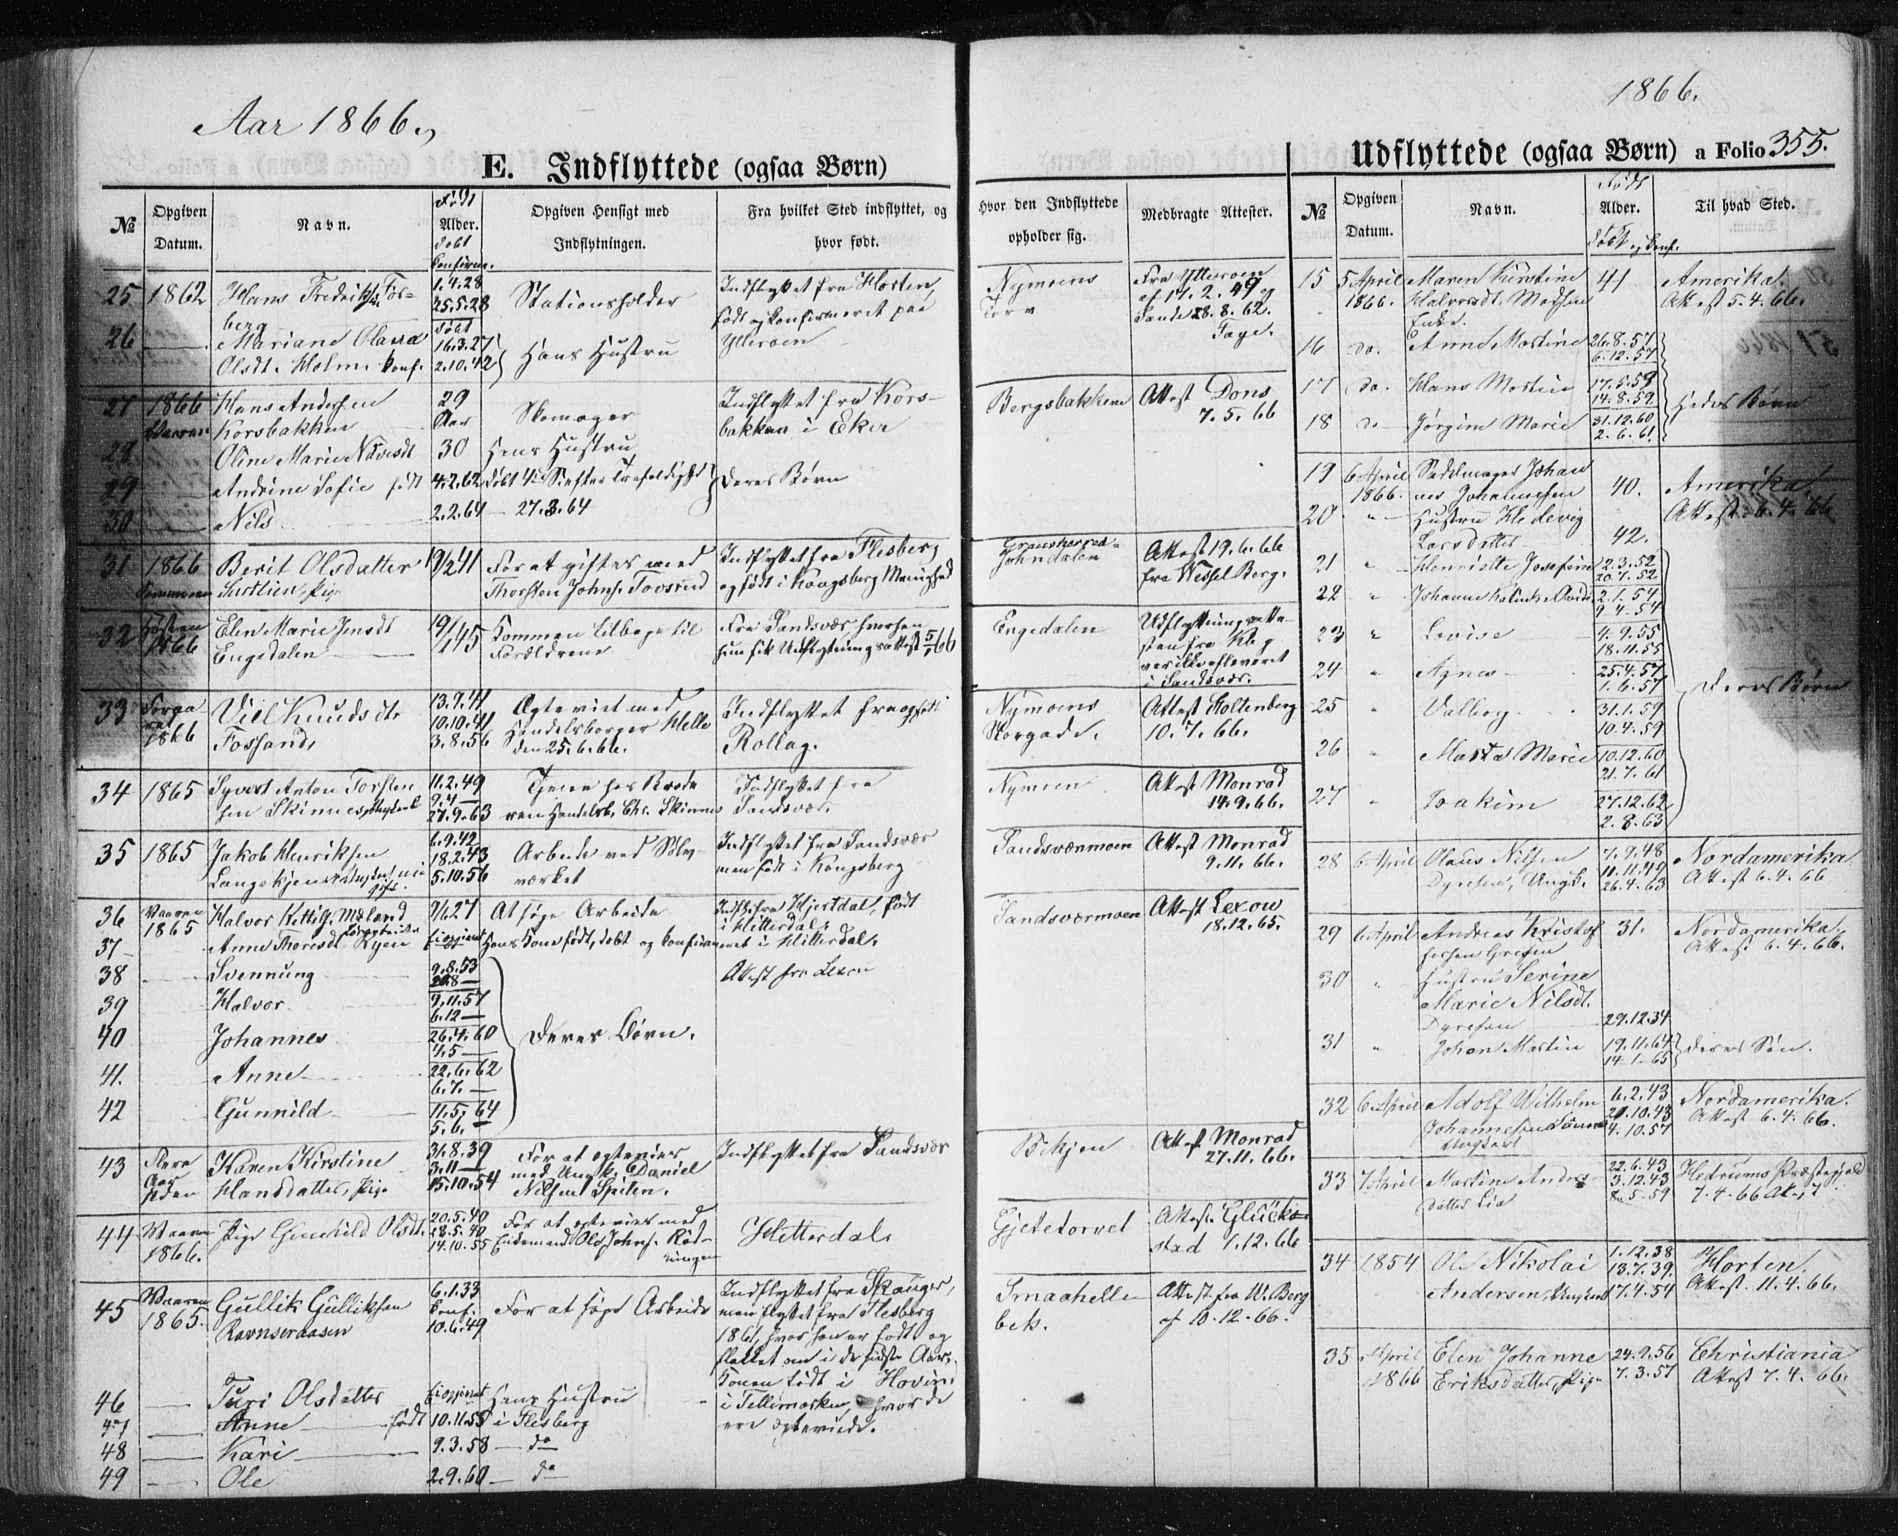 Aar 1866.
1866.
E. Indflyttede (ogsaa Børn)
Udflyttede (ogsaa Børn) a Folio 355.
№ Opgiven Datum. Navn. Født Alder. døbt konfirm. Opgiven Hensigt med Indflytningen. Fra hvilket Sted indflyttet, og hvor født. Hvor den Indflyttede opholder sig. Medbragte Attester.
25 1862 Hans Fredriksen Fos-
berg 1.4.28 25.5.28 Stationsholder Indflyttet fra Horten, født og konfirmeret paa Ytterøen Nymoens Torv Fra Ytterøen af 17.2.49 og Sande 28.8.62. Faye.
26 Mariane Olava
Olsdt. Holm konf. døbt 16.3.27 2.10.42 Hans Hustru
27 1866 Vaaren Hans Andersen
Korsbakken 29 Aar Skomager Indflyttet fra Kors-
bakken i Eker Bergsbakken Attest Dons 7.5.66
28 Oline Marie 30 Hans Hustru
29 Andrine Sofie født 4.2.62 døbt 4de S. efter Trefoldighed Deres Børn
30 Nils 2.2.64 — 27.3.64
31 1866 Sommeren Berit Olsdatter
Pige 19/2 41 For at giftes med
Thorsten Johns. Tovsrud Indflyttet fra Flesberg
og født i Kongsberg Menighed Gransherred-
Johndalen Attest 19.6.66
fra Wessel Berg.
32 Høsten 1866 Elen Marie Jensdt.
Engedalen 19/ 45 Kommen tilbage til
Forældrene Fra Sandsvær, hvorhen
hun fik Udflytningsattest 5/ 66 Engedalen Udflytningsatte-
sten fra Kbg
var ikke afleveret
i Sandsvær.
33 1866 Knudsdtr.
Fossan 13.9.41 10.10.41 3.8.56 Ægteviet med
Handelsborger Helle
den 25.6.66. Indflyttet fra og født
Rollag. Nymoens
Storgade. Attest Stoltenberg
10.7.66.
34 1865 Syvert Anton Torsten
sen Skinnes, Ungkarl 11.2.49 9.4 — 27.9.63 Tjener hos Brode
ren Handelsb. Chr. Skinnes Indflyttet fra
Sandsvær. Nymoen Attest Monrad
14.9.66.
35 1865 Jakob Henriksen
Langekjen 6.9.42 18.2.43 5.10.56 Arbeide ved Sølv-
værket Indflyttet fra Sandsvær
men født i Kongsberg Sandsværmoen Attest Monrad
9.11.66.
36 Vaaren 1865 Halvor Kittils. Mæland 7/6 27 At søge Arbeide Indfl. fra Hjertdal, født
i Hitterdal. Sandsværmoen Attest Lexow
18.12.65.
37 Anne Thoresdt. Ryen Ei opgivet Hans Kone født, døbt og konfirme
ret i Hitterdal.
38 Svennung 9.8.53 20.8 — Attest fra Lexow
39 Halvor 9.11.57 6.12 —
40 Johannes 26.4.60 4.5 — Deres Børn.
41. Anne 22.6.62 6.7. —
42 Gunnild 11.5.64 5.6. —
43 Karen Kirstine
Hansdatter, Pige 31.8.39 3.11 — 15.10.54 For at ægtevies
med Ungk. Daniel
Nilsen Spiten. Indflyttet fra Sandsvær Bekjen Attest Monrad
27.11.66.
44 Vaaren 1866. Pige Gunhild Olsdt. 20.5.40 28.5.40 14.10.55 For at ægtevies med
Enkemand Ole Johns. Rød-
ningen Hitterdal. Gjetetorvet Attest. Glück-
stad 1.12.66
45 Vaaren 1865. Gullik Gulliksen
Ravnseraasen 6.1.33 konf. 10.6.49 For at søge Arbeide Indflyttet fra Skauger,
men flyttet fra Flesberg
1861, hvor han er født og
flakket om i de sidste Aar,
Konen født i Hovin
i Tellemarken, hvor de
ere ægteviede. Smaahelle
bek. Attest fra W. Berg
af 10.12.66.
46 Turi Olsdatter Ei opgivet Hans Hustru
47 Anne født 10.11.55 i Flesberg
48 Kari 9.3.58 — do
49 Ole 2.9.60 — do
№ Opgiven Datum. Navn. Født Alder. døbt og konf. Til hvad Sted.
15 5 April 1866. Maren Kirstine
Halvorsdt. Madsen
Enke. 41 Amerika.
Attest 5.4.66.
16 do. Anne Martine 26.8.57 6.12.57
17 do. Hans Martin 17.5.59 14.8.59 Hendes Børn
18 do Jørgine Marie 31.12.60 2.6.61
19 6 April 1866. Sadelmager Johan
nes Johannesen 40. Amerika.
Attest. 6.4.66
20 " Hustru Hedevig
Larsdatter 42.
21 " Henriette Josefine 2.3.52 20.7.52
22 " Johanne 2.1.54 9.4.54
23 " Lovise 4.9.55 18.11.55
24 " Agnes 25.4.57 1.6.57 Deres Børn
25 " Valborg 31.1.59 10.4.59
26 " Marta Marie 10.12.60 21.7.61
27 " Joakim 27.12.62 2.8.63
28 6 April Olaus Nilsen
Dyresen, Ungk. 7.9.48 11.11.49 26.4.63 Nordamerika.
Attest 6.4.66
29 6 April Andreas Kristof
fersen Grefsen 31. Nordamerika.
Attest 6.4.66.
30 " Hustru Serine
Marie Nilsdt.
Dyresen 29.12.34
31 " Johan Martin 19.11.64 14.1.65 deres Søn.
32 6 April Adolf Wilhelm
Johannesen
Ungkarl 6.2.43 20.10.43 4.10.57 Nordamerika.
Attest 6.4.66.
33 7 April Martine Anders-
datter Lia 22.6.43 3.12.43 8.5.59 Hedrums Præstegjeld
7.4.66 Attest
34 1854 Ole Nikolai
Andersen, Ungkarl 1.12.38 13.7.39. 17.4.54 Horten.
Attest. 11.4.66.
35 April 1866 Elen Johanne
Eriksdatter, Pige 24.9.56 7.3.57 Christiania
Attest 7.4.66.